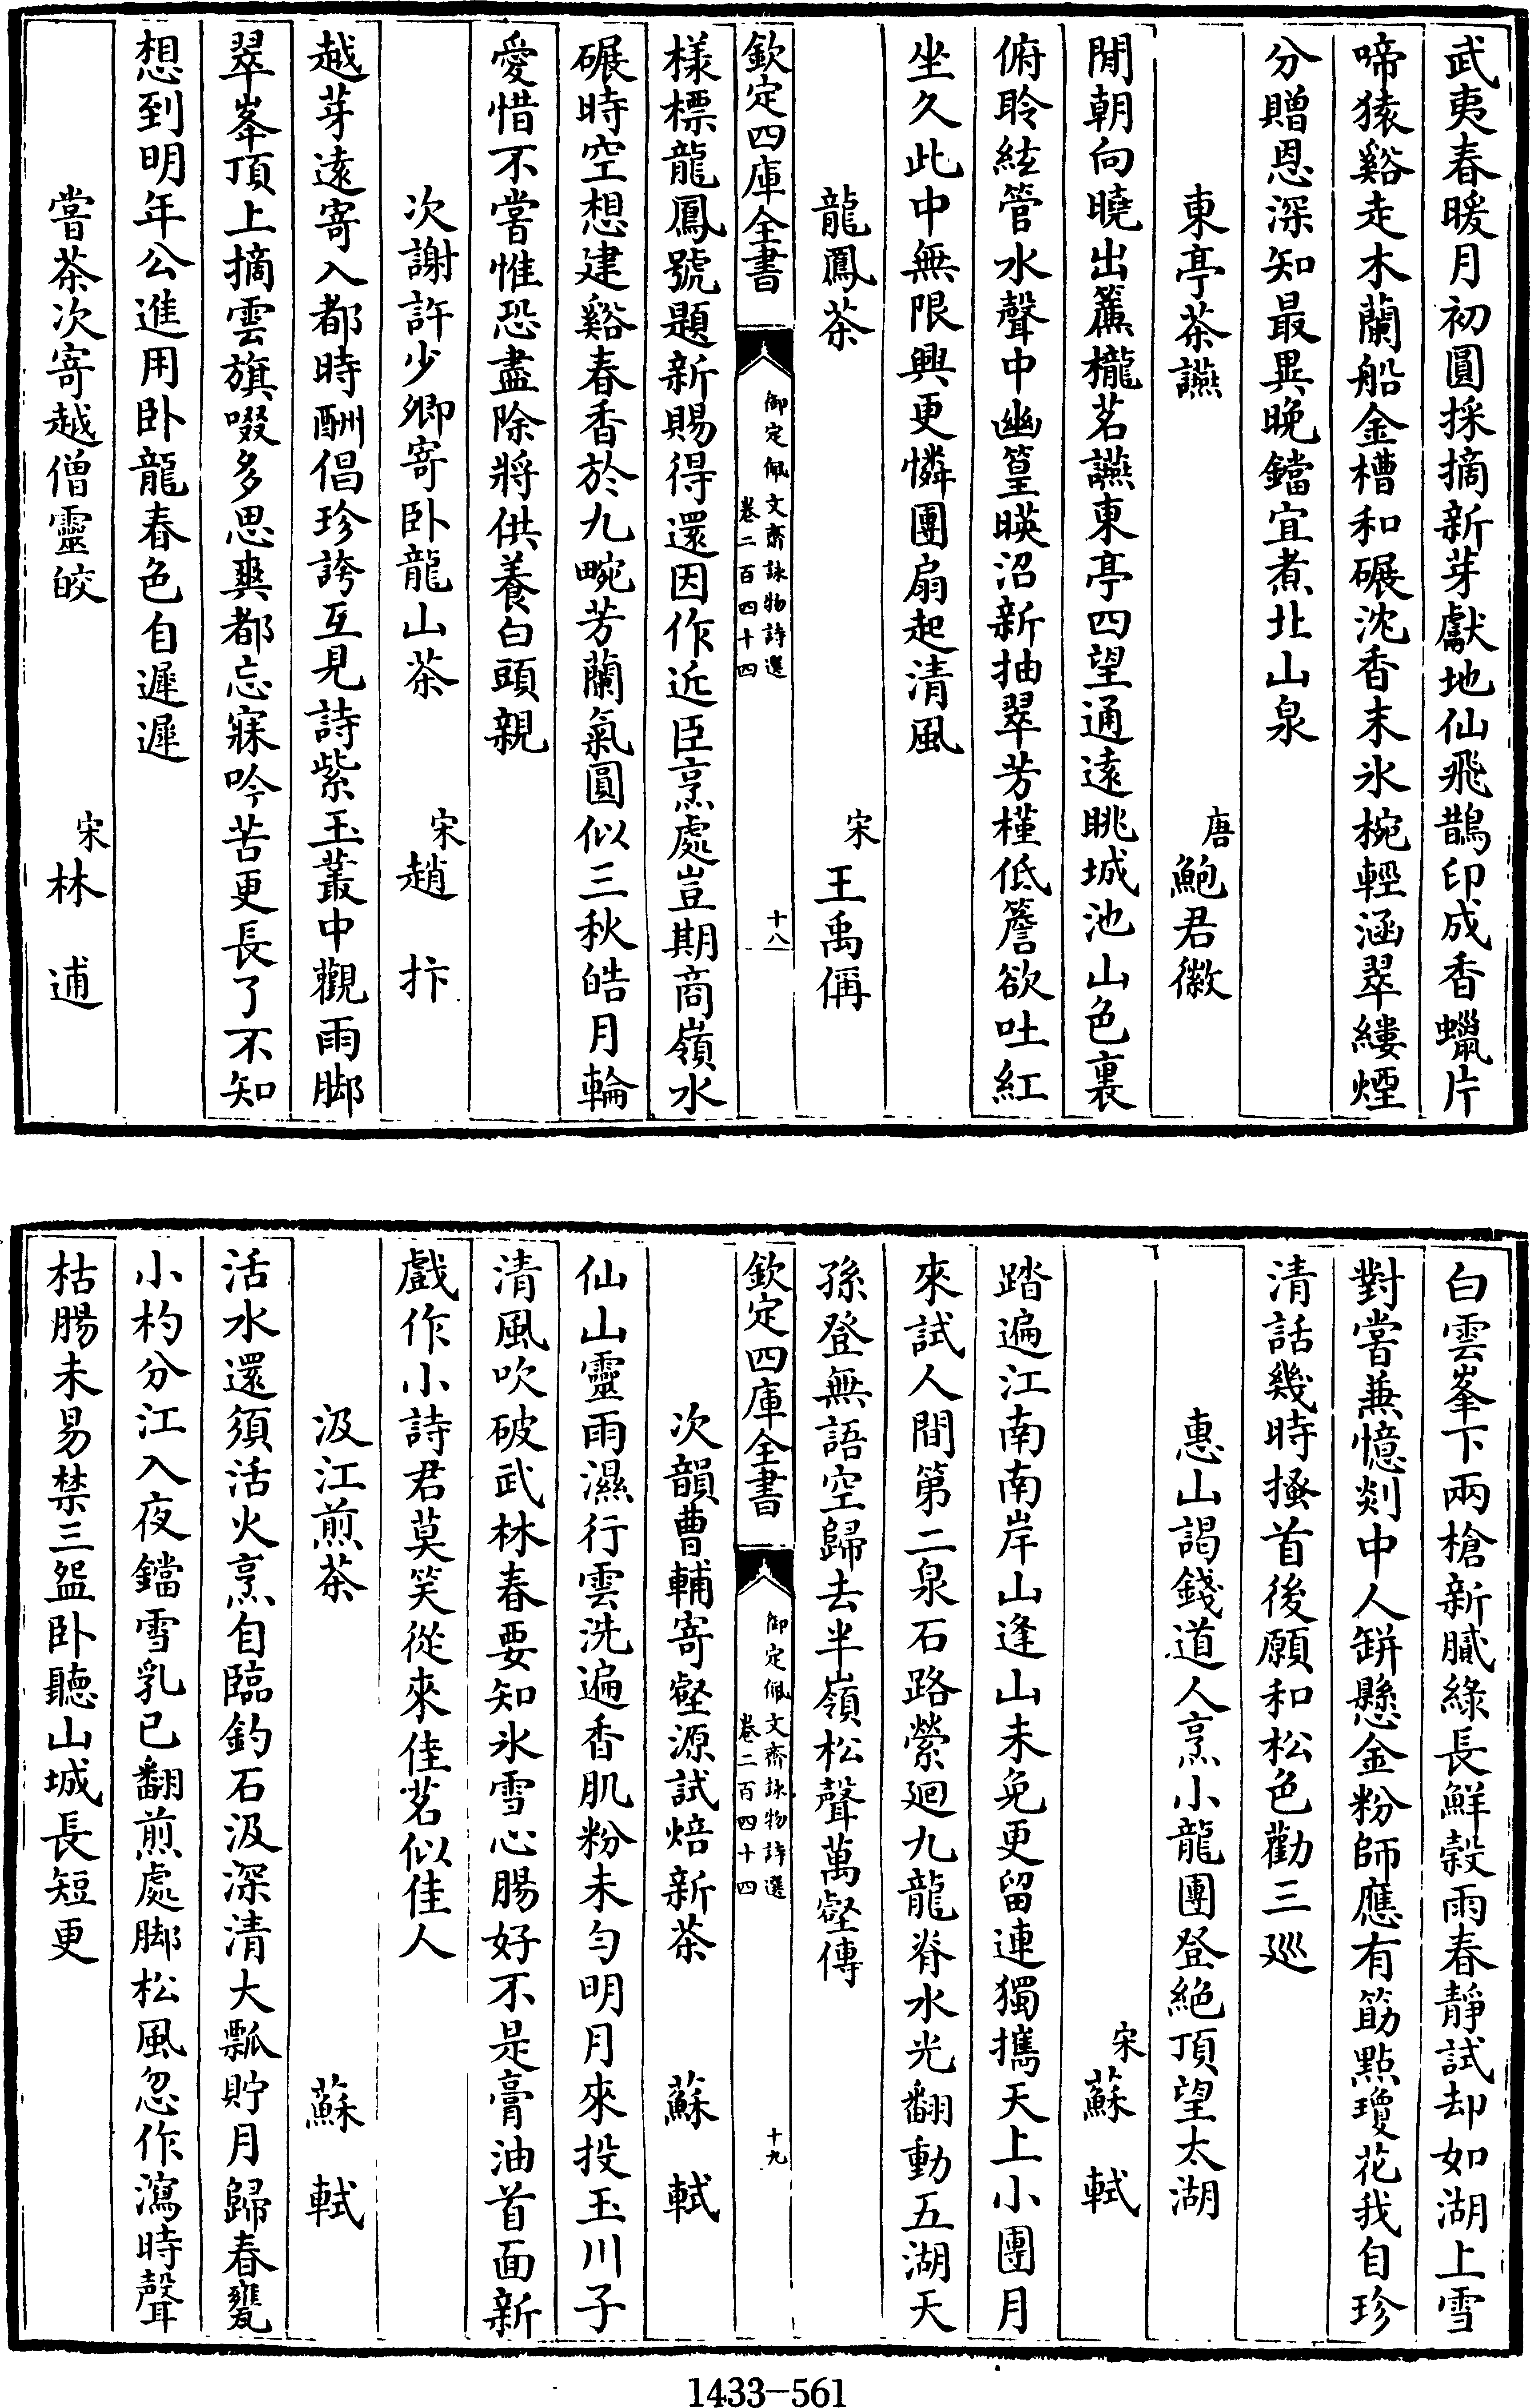 武夷春暖月初圓採摘新芽獻地仙飛鵲印成香蠟片
啼猿谿走木蘭船金槽和碾沈香末氷椀輕涵翠縷煙
分贈恩深知最異晚鐺宜煮北山泉
東亭茶讌　唐鮑君徽
閒朝向曉出簾櫳茗讌東亭四望通遠眺城池山色裏
俯聆絃管水聲中幽篁暎沼新抽翠芳槿低簷欲吐紅
坐久此中無限興更憐團扇起清風
龍鳳茶　宋王禹偁
欽定四庫全書　御定佩文齋詠物詩選卷二百四十四　十八
樣標龍鳳號題新賜得還因作近臣烹處豈期商嶺水
碾時空想建谿春香於九畹芳蘭氣圓似三秋皓月輪
愛惜不嘗惟恐盡除將供養白頭親
次謝許少卿寄卧龍山茶　宋趙抃
越芽遠寄入都時酬倡珍誇互見詩紫玉叢中觀雨脚
翠峯頂上摘雲旗啜多思爽都忘寐吟苦更長了不知
想到明年公進用卧龍春色自遲遲
嘗茶次寄越僧靈皎　宋林逋
白雲峯下兩槍新膩綠長鮮穀雨春靜試却如湖上雪
對嘗兼憶剡中人缾懸金粉師應有筯點瓊花我自珍
清話幾時搔首後願和松色勸三巡
惠山謁錢道人烹小龍團登絕頂望太湖
宋蘇軾
踏遍江南南岸山逢山未免更留連獨攜天上小團月
來試人間第二泉石路縈廻九龍脊水光翻動五湖天
孫登無語空歸去半嶺松聲萬壑傳
欽定四庫全書　御定佩文齋詠物詩選卷二百四十四　十九
次韻曹輔寄壑源試焙新茶　蘇軾
仙山靈雨濕行雲洗遍香肌粉未勻明月來投玉川子
清風吹破武林春要知氷雪心腸好不是膏油首面新
戲作小詩君莫笑從來佳茗似佳人
汲江煎茶　蘇軾
活水還須活火烹自臨釣石汲深清大瓢貯月歸春甕
小杓分江入夜鐺雪乳已翻煎處脚松風忽作瀉時聲
枯腸未易禁三盌卧聽山城長短更
1433-561